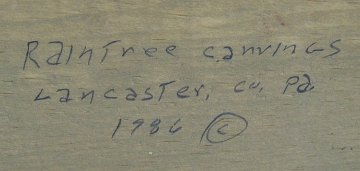 Raintree carvings
Lancaster, co, Pa.
1986 ©